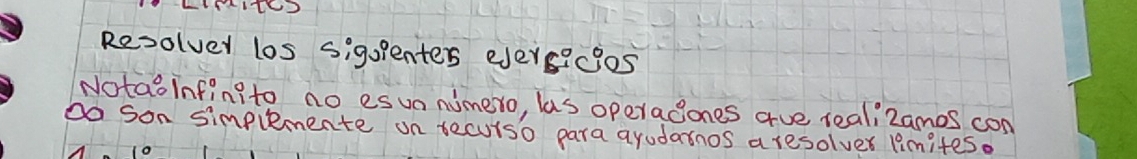 Limites
Resolver los siguientes ejersicios
Nota: Infinito no es un número, las operaciones que realizamos con
∞ son simplemente un recurso para ayudarnos a resolver límites.